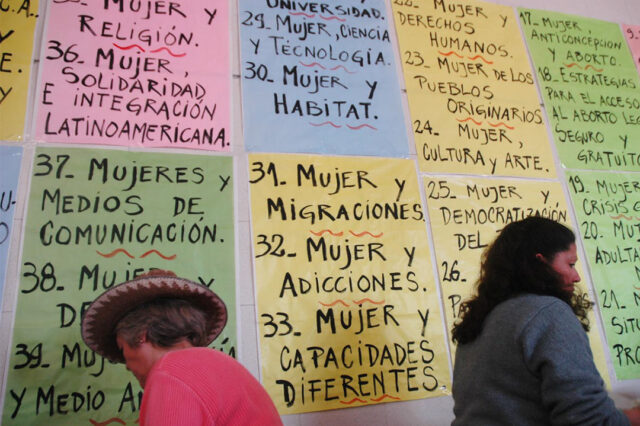 C.A.
Y
35_ MUJER Y
RELIGIÓN.
36_ MUJER,
SOLIDARIDAD
E INTEGRACIÓN
LATINOAMERICANA.
UNIVERSIDAD.
29_ MUJER, CIENCIA
Y TECNOLOGÍA.
30_ MUJER Y
HABITAT.
22_ MUJER Y
DERECHOS
HUMANOS.
23_ MUJER DE LOS
PUEBLOS
ORIGINARIOS
24_ MUJER,
CULTURA Y ARTE.
17_ MUJER,
ANTICONCEPCIÓN
Y ABORTO.
18_ ESTRATEGIAS
PARA EL ACCESO
AL ABORTO LEGAL
SEGURO Y
GRATUITO
37_ MUJERES Y
MEDIOS DE
COMUNICACIÓN.
38_ MUJER Y
39_ MUJER
Y MEDIO
31_ MUJER Y
MIGRACIONES.
32_ MUJER Y
ADICCIONES.
33_ MUJER Y
CAPACIDADES
DIFERENTES.
25_ MUJER Y
DEMOCRATIZACIÓN
DEL
26_
19_ MUJER
CRISIS
20_
ADULTA
21_